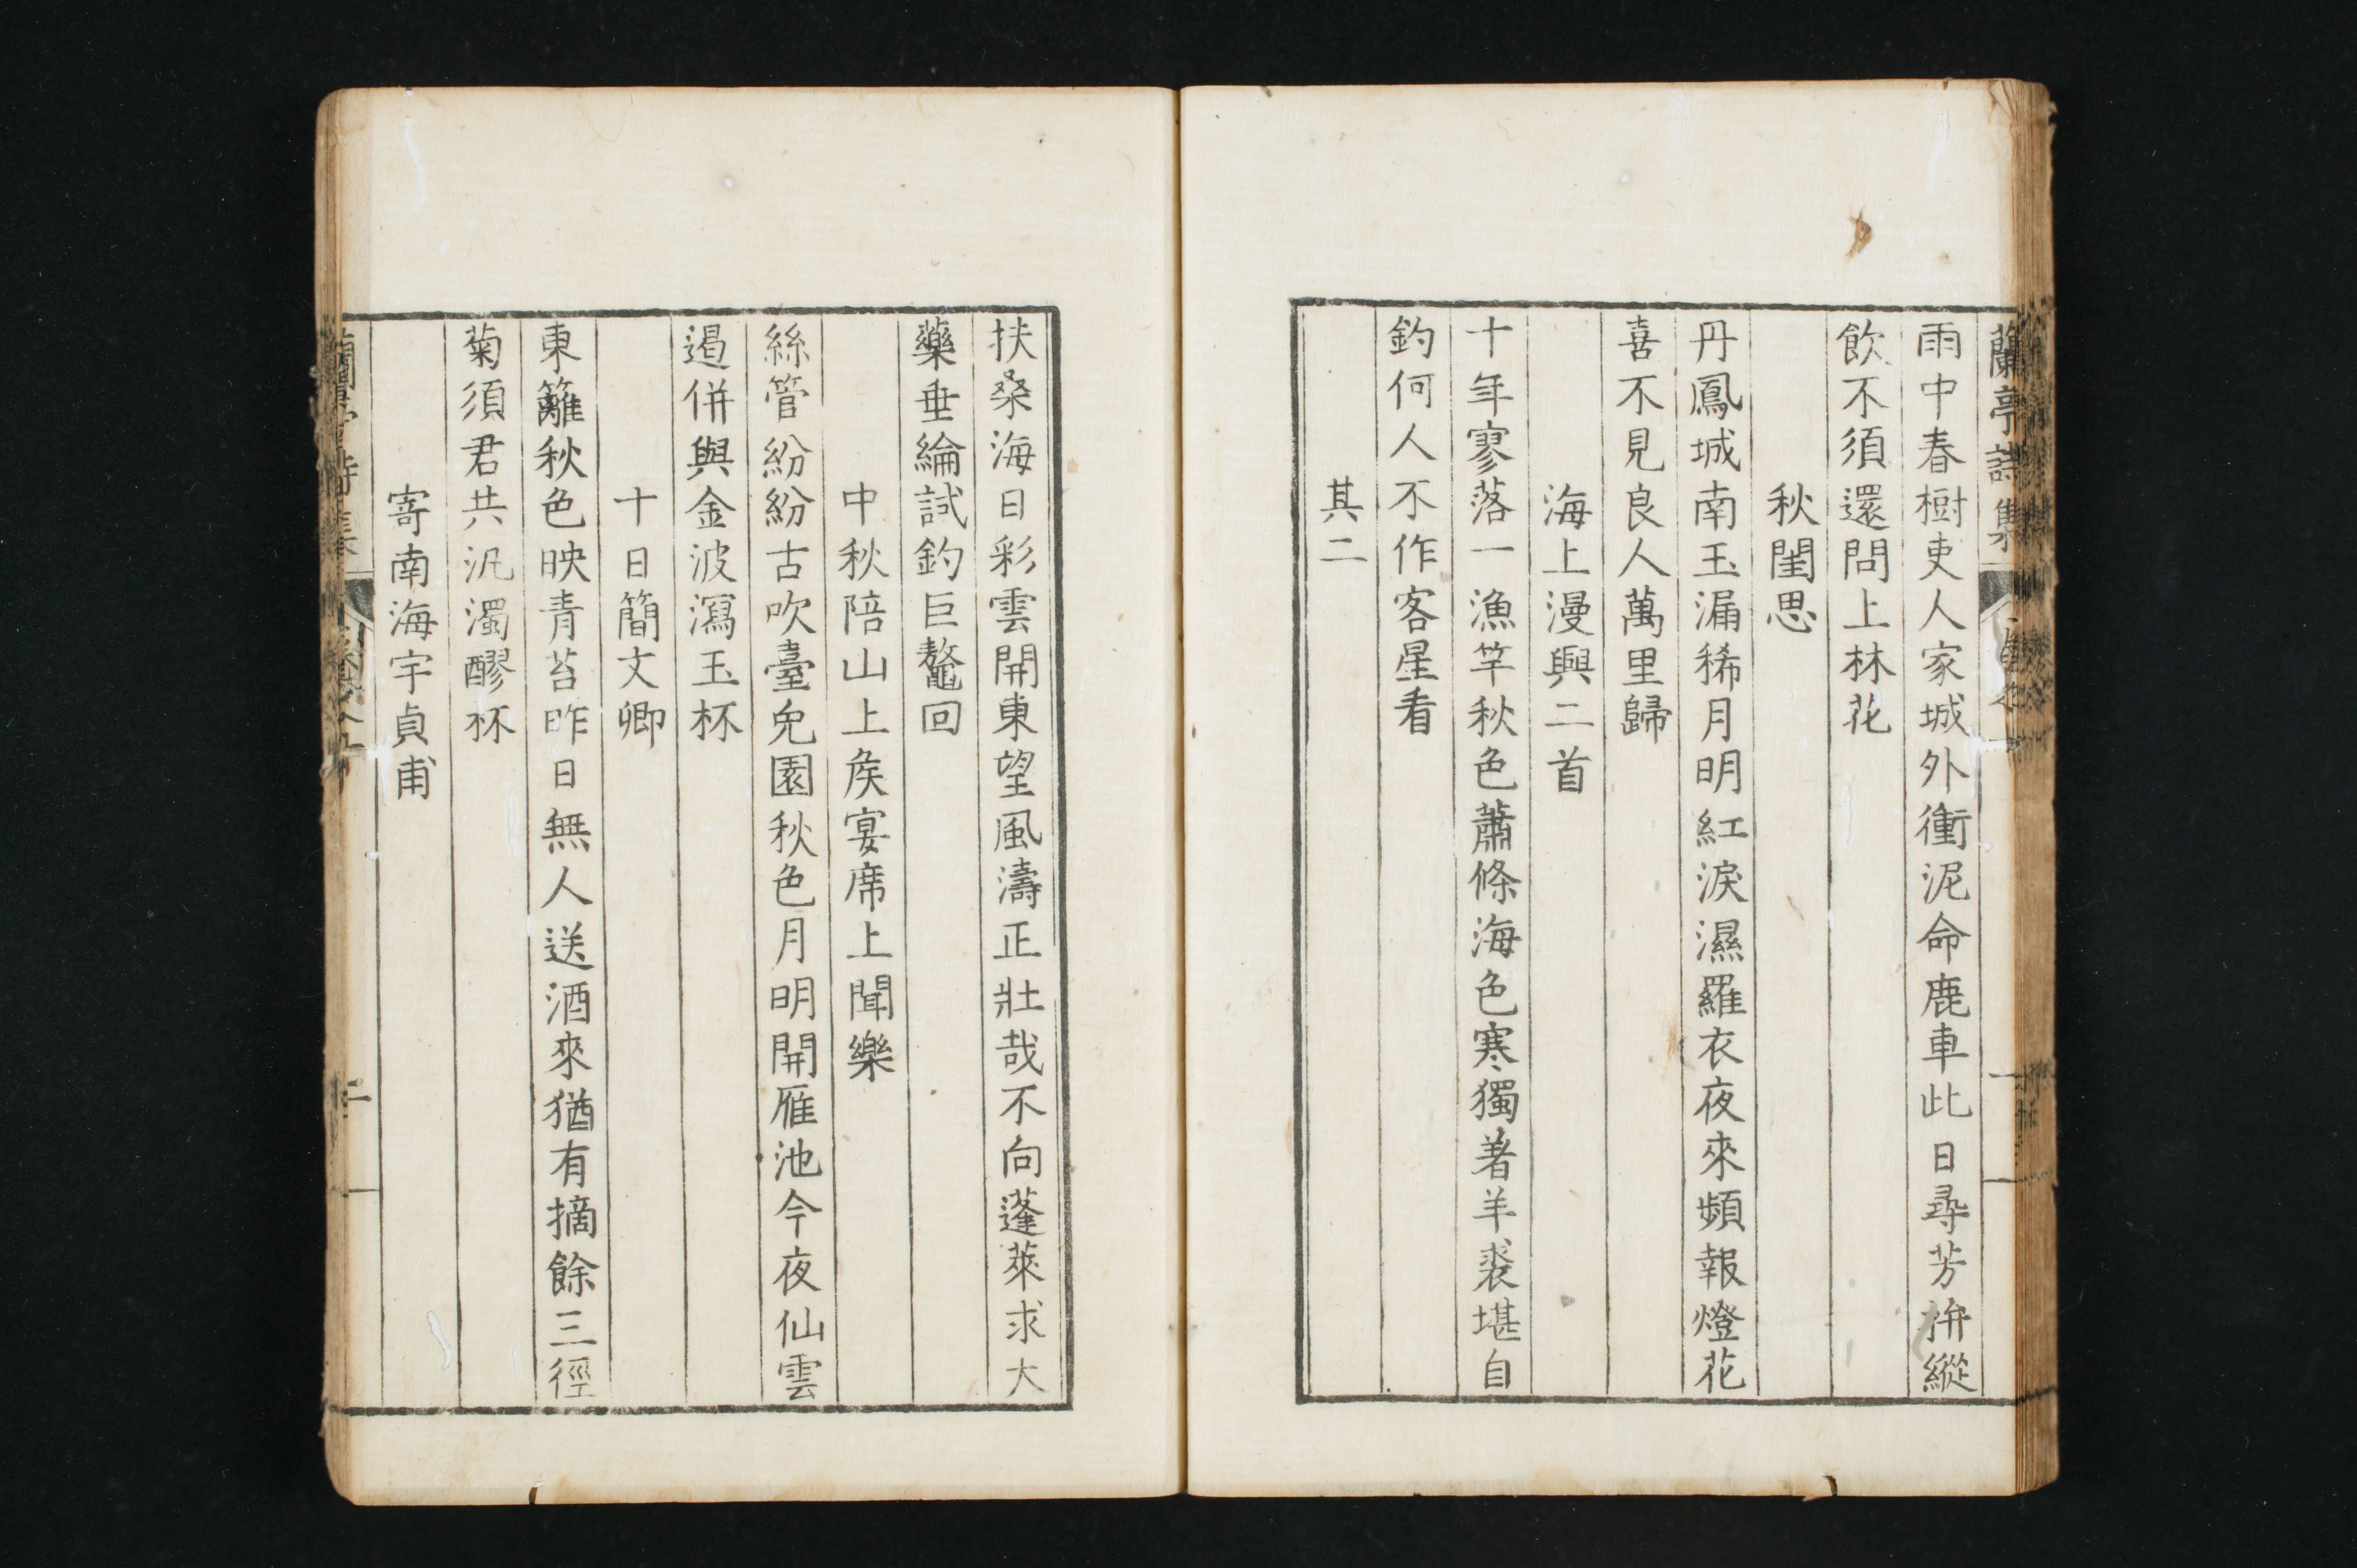 蘭亭詩集
雨中春樹吏人家城外衝泥命鹿車此日尋芳拚縱
飲不須還問上林花
秋閨思
丹鳳城南玉漏稀月明紅淚濕羅衣夜來頻報燈花
喜不見良人萬里歸
海上漫興二首
十年寥落一漁竿秋色蕭條海色寒獨著羊裘堪自
釣何人不作客星看
其二
扶桑海日彩雲開東望風濤正壯哉不向蓬萊求大
藥垂綸試釣巨鼇回
中秋陪山上矦宴席上聞樂
絲管紛紛古吹臺兔園秋色月明開雁池今夜仙雲
遏併與金波瀉玉杯
十日簡文卿
東籬秋色映青苔昨日無人送酒來猶有摘餘三徑
菊須君共汎濁醪杯
寄南海宇貞甫